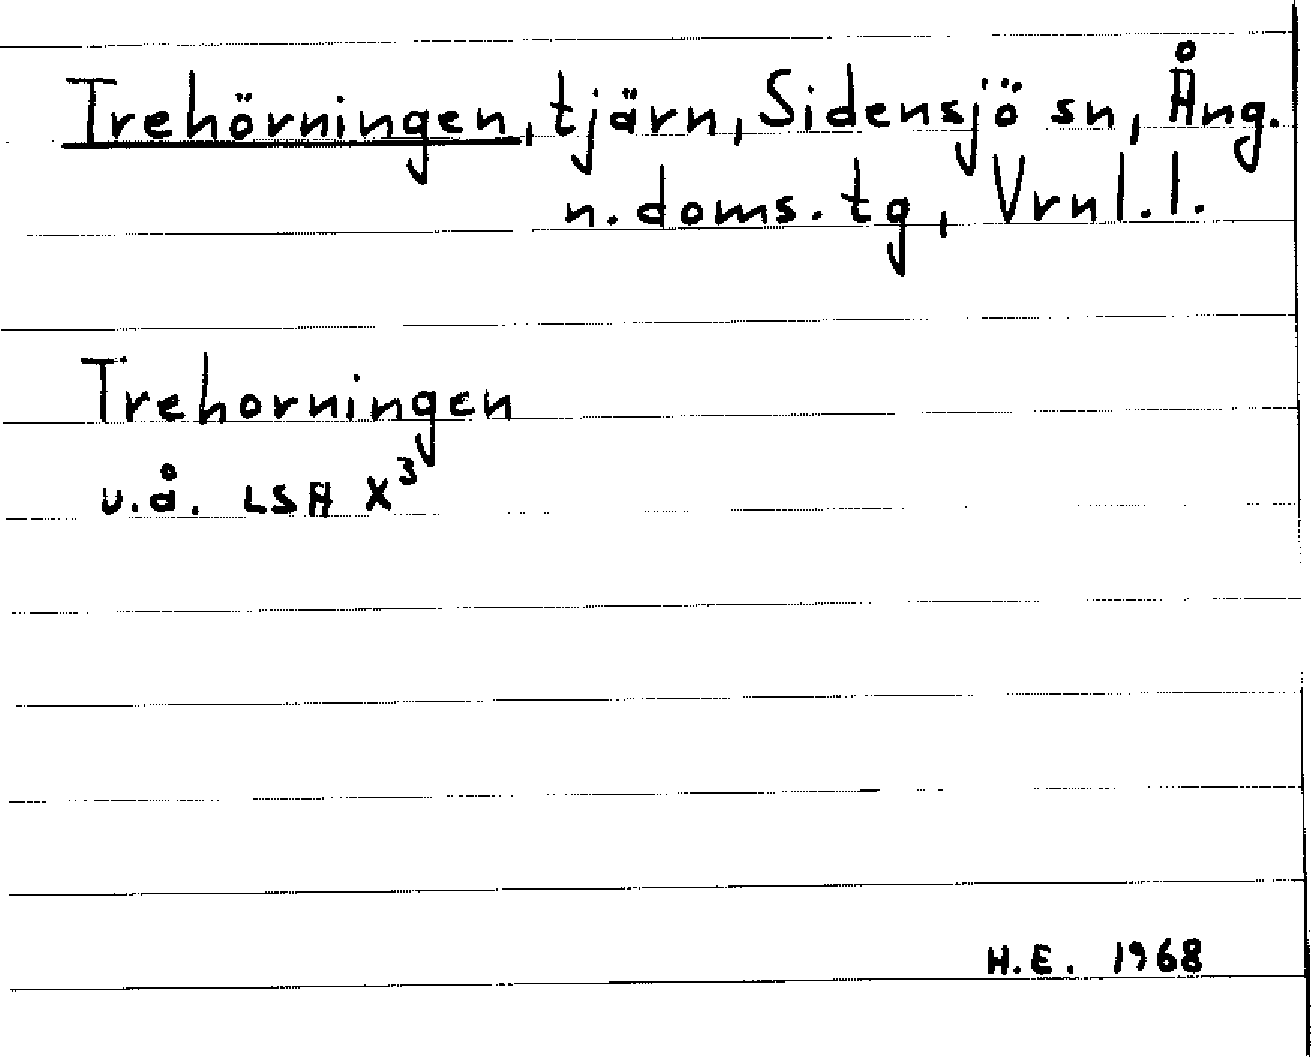 Trehörningen, tjärn, Sidensjö sn, Ång.
n. doms. tg, Vrnl. l.
Trehorningen
u.å. LSA X³
H.E. 1968